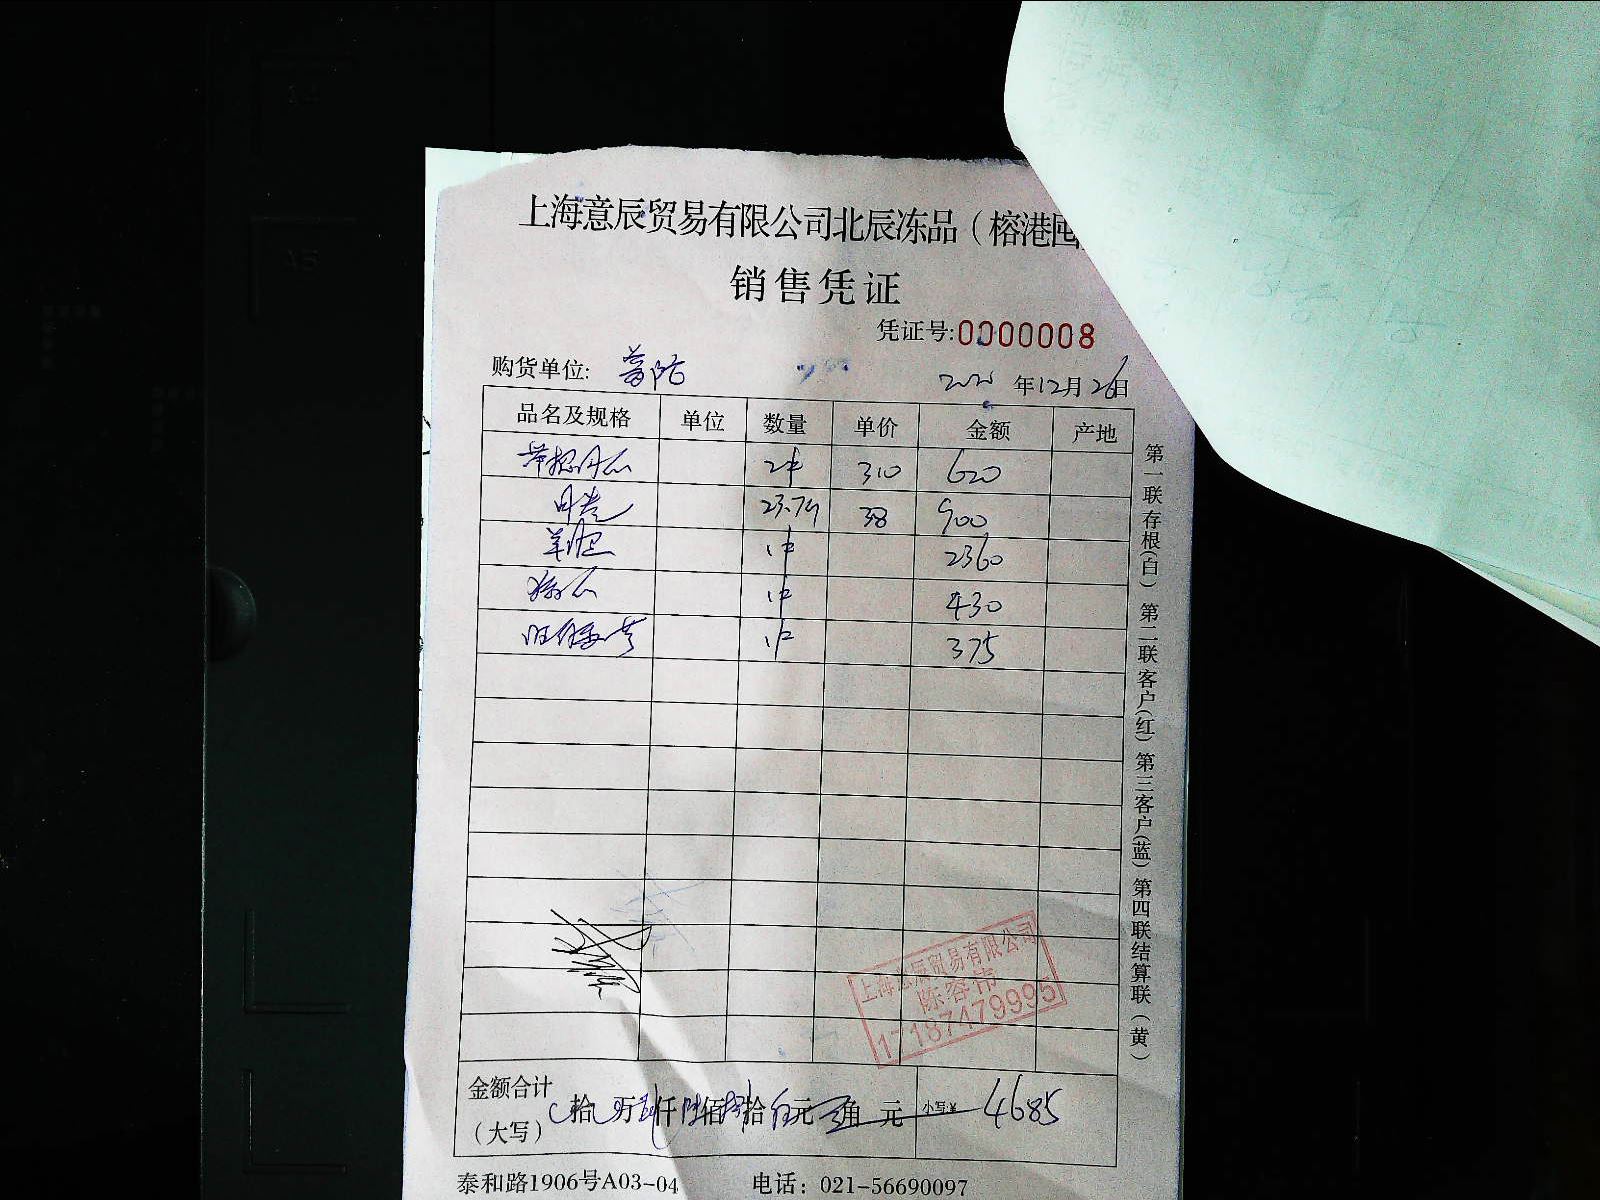 上海意辰贸易有限公司北辰冻品（榕港囤
销售凭证
凭证号:0000008
购货单位: 普陀
年12月26日
品名及规格 单位 数量 单价 金额 产地
2件 310 620
23.79 38 900
1件 2360
1件 430
1件 375
上海意辰贸易有限公司
陈容伟
17187479995
金额合计
（大写） 拾 万 仟 佰 拾 元 角 元 小写:¥ 4685
泰和路1906号A03-04 电话：021-56690097
第一联存根(白) 第二联客户(红) 第三客户(蓝) 第四联结算联（黄）